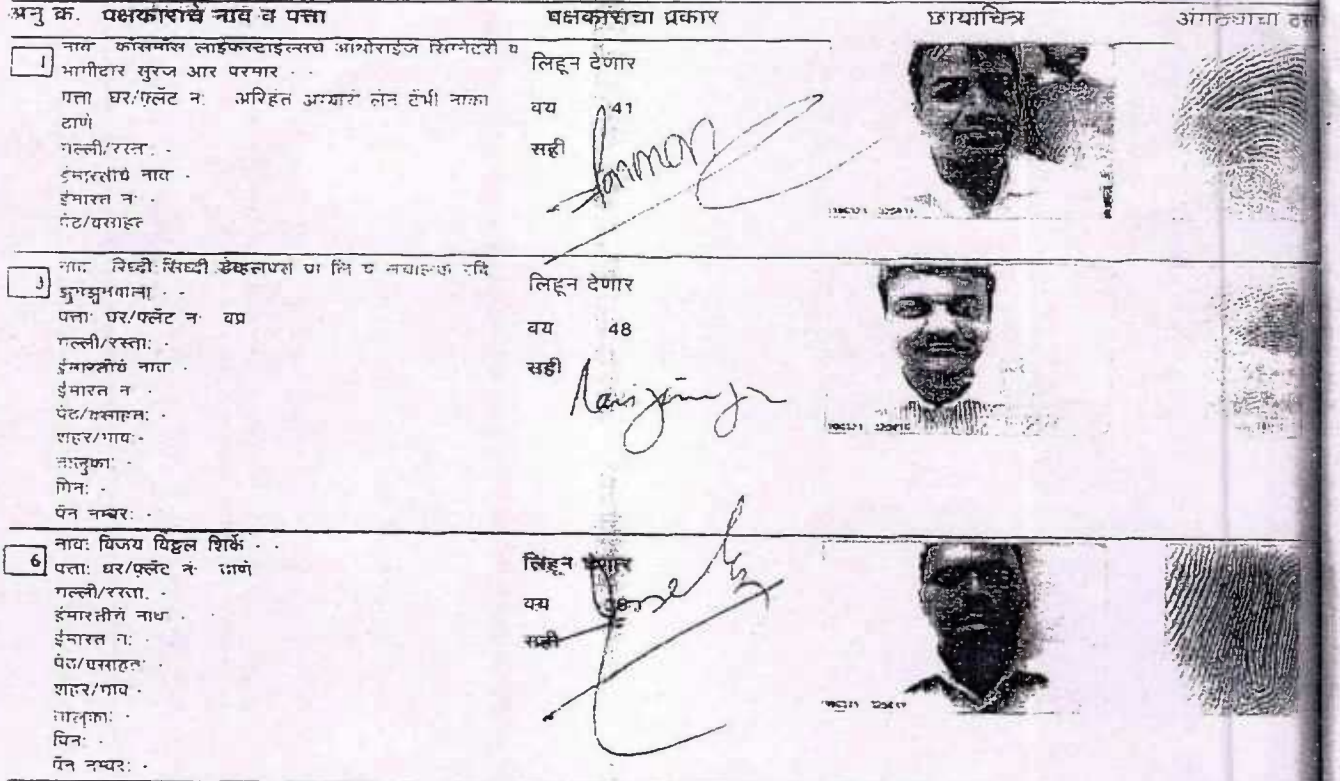 अनु क्र. पक्षकाराचे नाव व पत्ता पक्षकाराचा प्रकार छायाचित्र अंगठ्याचा ठसा
1 नाव कॉसमॉस लाईफस्टाईल्सचे ऑथोराईज सिग्नेटरी व
भागीदार सुरज आर परमार - -
पत्ता घर/फ्लॅट न: अरिहंत अग्यारी लेन टेंभी नाका
ठाणे
गल्ली/रस्ता: -
ईमारतीचे नाव -
ईमारत नं: -
पेठ/वसाहत
लिहून देणार
वय 41
सही
3 नाव: रिध्दी सिध्दी डेव्हलपर्स प्रा लि चे संचालक रवि
झुनझुनवाला - -
पत्ता: घर/फ्लॅट नं: वप्र
गल्ली/रस्ता: -
ईमारतीचे नाव -
ईमारत नं -
पेठ/वसाहत: -
शहर/गाव -
तालुका: -
पिन: -
पॅन नम्बर: -
लिहून देणार
वय 48
सही
6 नाव: विजय विठ्ठल शिर्के - -
पत्ता: घर/फ्लॅट नं: ठाणे
गल्ली/रस्ता: -
ईमारतीचे नाव -
ईमारत नं: -
पेठ/वसाहत: -
शहर/गाव -
तालुका: -
पिन: -
पॅन नम्बर: -
लिहून देणार
वय
सही